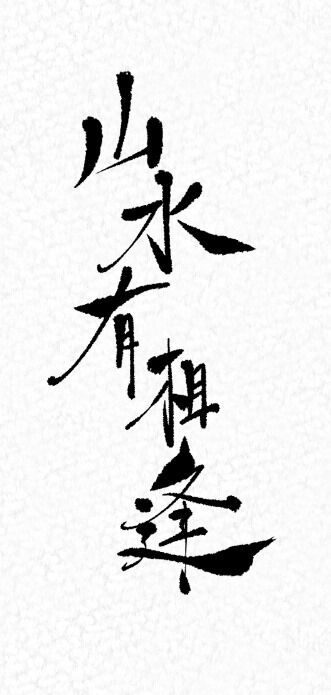 山水有相逢